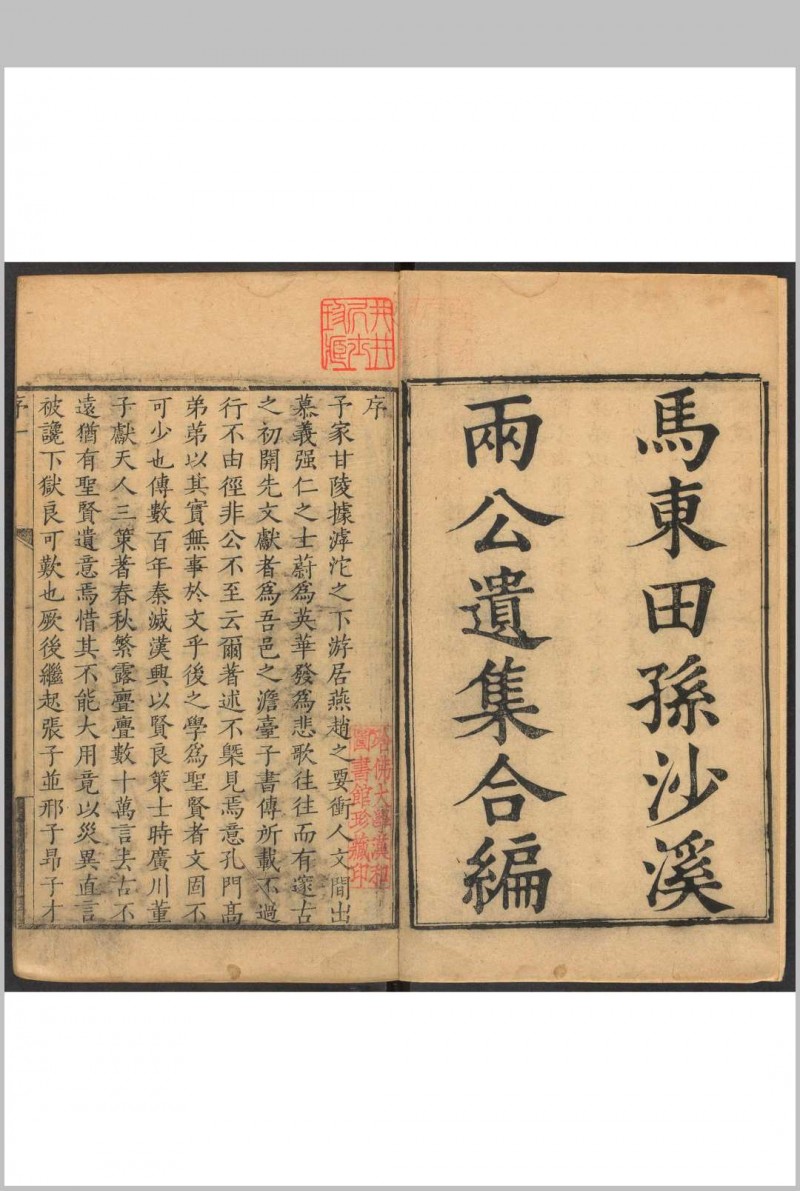 馬東田孫沙溪
兩公遺集合編
序
予家甘陵據滹沱之下游居燕趙之要衝人文間出
慕義强仁之士蔚爲英華發爲悲歌往往而有邃古
之初開先文獻者爲吾邑之澹臺子書傳所載不過
行不由徑非公不至云爾著述不槩見焉意孔門高
弟弟以其實無事於文乎後之學爲聖賢者文固不
可少也傳數百年秦滅漢興以賢良策士時廣川董
子獻天人三策著春秋繁露亹亹數十萬言去古不
遠猶有聖賢遺意焉惜其不能大用竟以災異直言
被讒下獄良可歎也厥後繼起張子並邢子昻子才
序
一
哈佛大學漢和
圖書館珍藏印